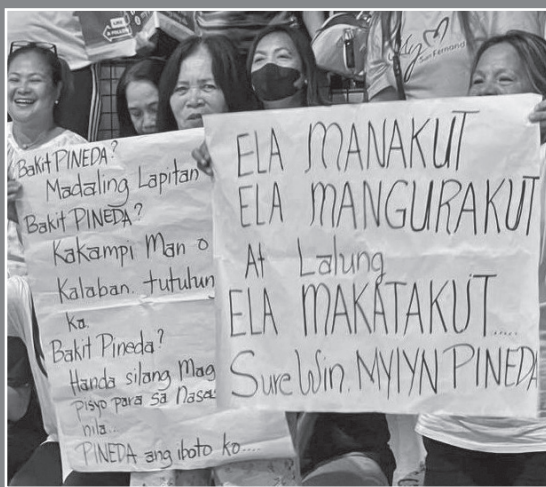 San Fernando
Bakit PINEDA?
Madaling Lapitan
Bakit PINEDA?
Kakampi Man o
Kalaban. tutulun
ka.
Bakit Pineda?
Handa silang Mag
pisyo para sa Nasa
nila..
PINEDA ang iboto ko....
ELA MANAKUT
ELA MANGURAKUT
At Lalung
ELA MAKATAKUT.....
Sure Win. MYLYN PINEDA